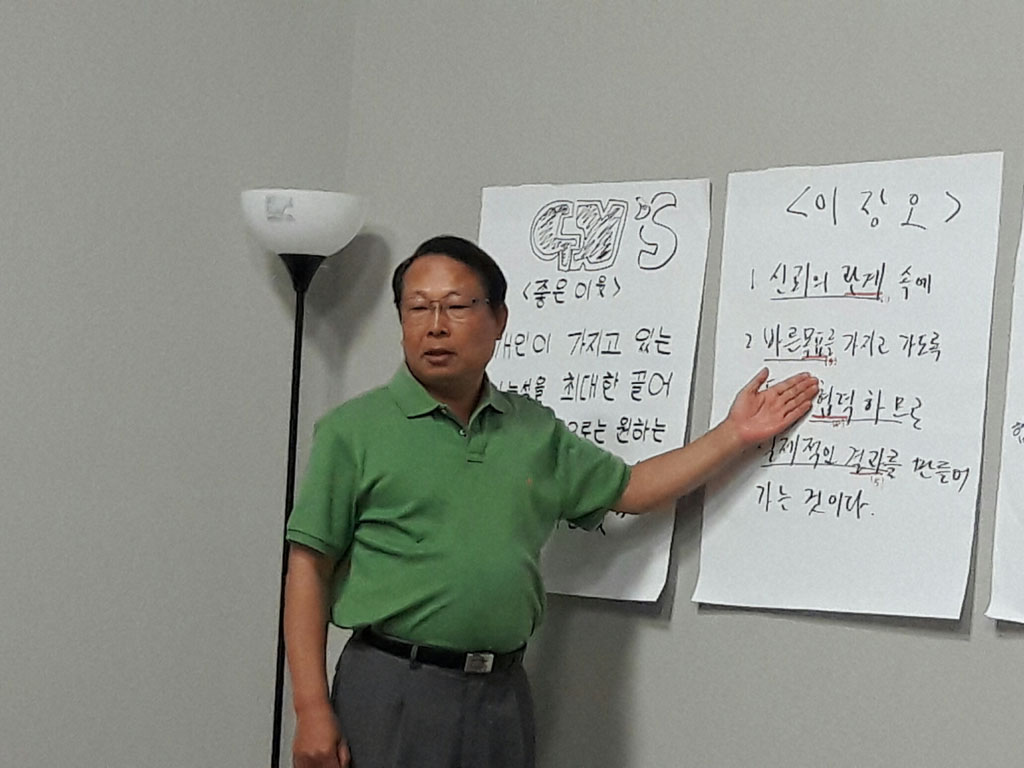 GN's
<좋은 이웃>
개인이 가지고 있는
최대한 끌어
으로는 원하는
<이 장 오>
1 신뢰의 관계 속에
2 바른 목표를 가지고 가도록
협력 하므로
실제적인 결과를 만들어
가는 것이다.